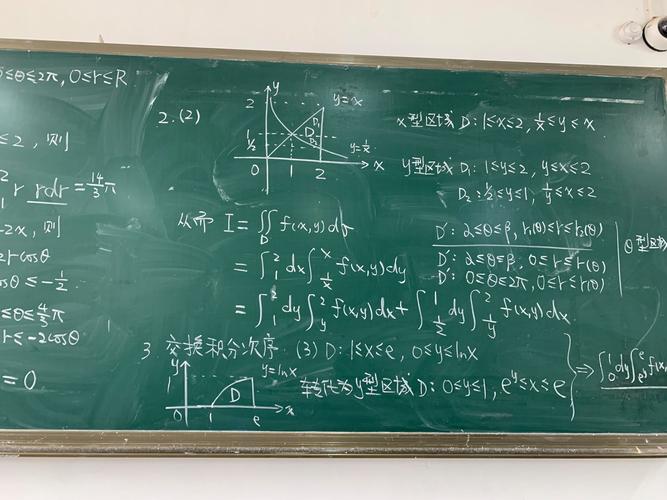 ≤θ≤2π, 0≤r≤R
≤2, 则
r rdr = 14/3 π
-2x, 则
2rcosθ
osθ≤-1/2
≤θ≤4/3π
r≤-2cosθ
=0
2.(2)
y
2
1
1/2
0
1
2
x
y=x
y=1/x
D₁
D₂
x型区域 D: 1≤x≤2, 1/x≤y≤x
y型区域 D₁: 1≤y≤2, y≤x≤2
D₂: 1/2≤y≤1, 1/y≤x≤2
从而 I=∬_D f(x,y)dσ
=∫₁² dx∫_{1/x}^{x} f(x,y)dy
=∫₁² dy∫_y^2 f(x,y)dx+∫_{1/2}^{1} dy∫_{1/y}^{2} f(x,y)dx
D': α≤θ≤β, r₁(θ)≤r≤r₂(θ)
D': α≤θ≤β, 0≤r≤r(θ)
D': 0≤θ≤2π, 0≤r≤r(θ)
θ型区域
3. 交换积分次序 (3) D: 1≤x≤e, 0≤y≤lnx
y
1
0
1
e
x
D
y=lnx
转化为y型区域 D: 0≤y≤1, e^y≤x≤e
⇒∫₀¹dy∫_{e^y}^{e} f(x,